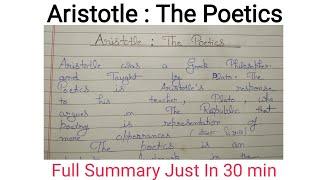 Aristotle : The Poetics
Aristotle : The Poetics
Aristotle was a Greek Philosopher
and Taught by Plato. The
Poetics is Aristotle's response
to his teacher, Plato, who
argues in The Republic that
poetry is representation of
mere appearances
The poetics is an
Full Summary Just In 30 min